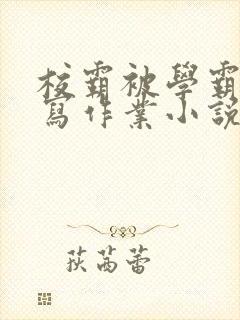 校霸被學霸
寫作業小說
荻苒蕾